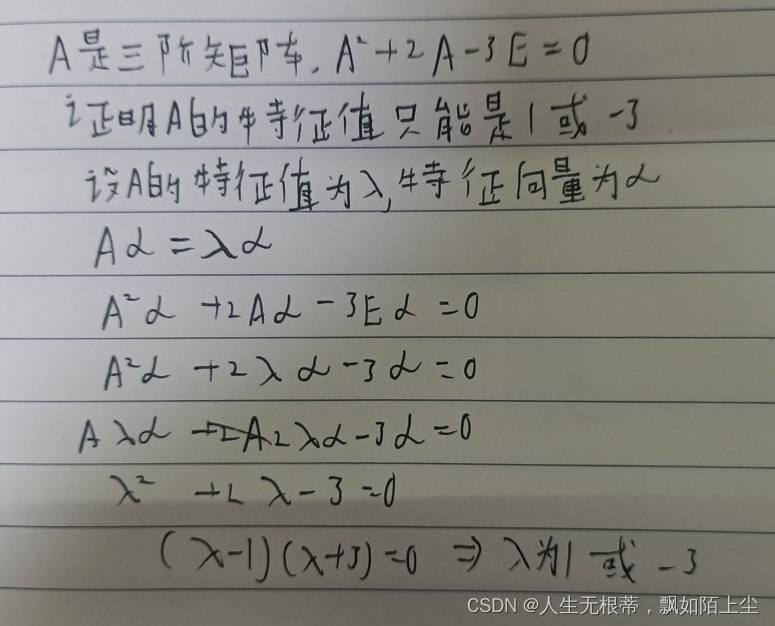 A是三阶矩阵,A²+2A-3E=0
证明A的特征值只能是1或-3
设A的特征值为λ,特征向量为α
Aα=λα
A²α+2Aα-3Eα=0
A²α+2λα-3α=0
Aλα+2λα-3α=0
λ²+2λ-3=0
(λ-1)(λ+3)=0⇒λ为1或-3
CSDN @人生无根蒂,飘如陌上尘